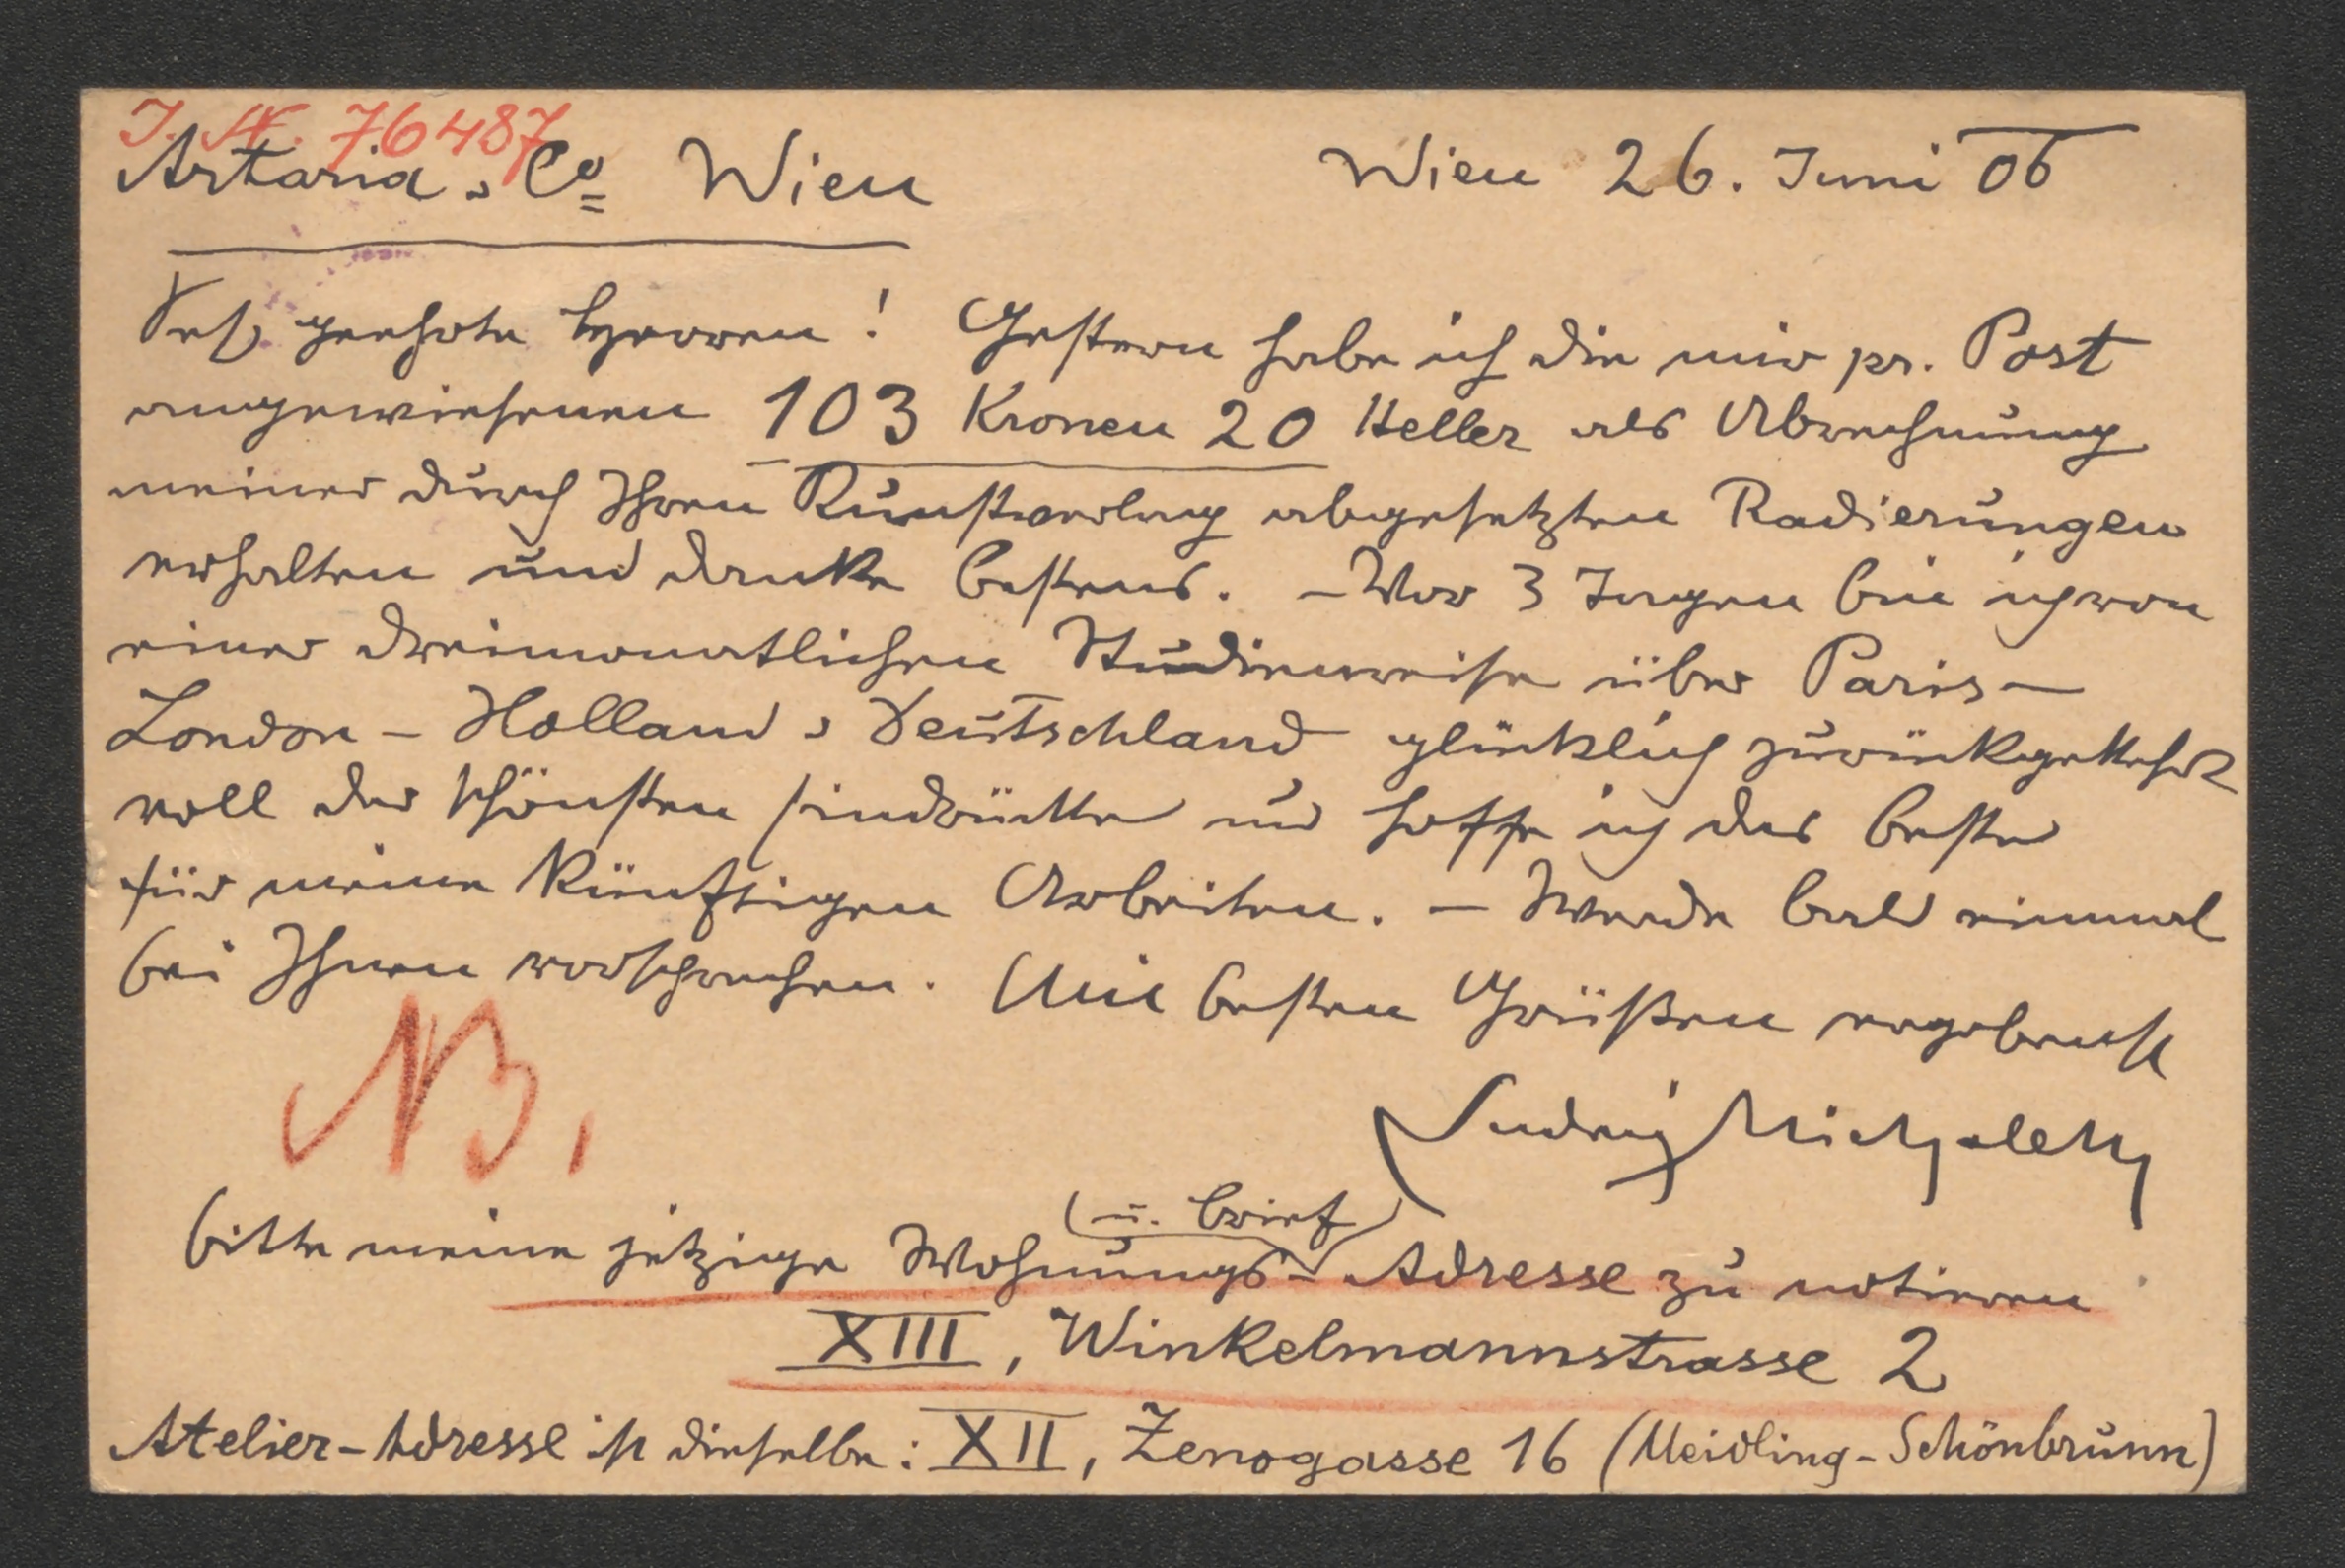 I. N. 76487
Artaria u Co Wien Wien 26. Juni 06
Sehr geehrte Herren! Gestern habe ich die mir pr. Post
angewiesenen 103 Kronen 20 Heller als Abrechnung
meiner durch Ihren Kunstverlag abgesetzten Radierungen
erhalten und danke bestens. – Vor 3 Tagen bin ich von
einer dreimonatlichen Studienreise über Paris –
London – Holland u Deutschland glücklich zurückgekehrt
voll der schönsten Eindrücke und hoffe ich das beste
für meine künftigen Arbeiten. – Werde bald einmal
bei Ihnen vorsprechen. Mit besten Grüßen ergebenst
Ludwig Michalek
NB.
(u. Brief)
bitte meine jetzige Wohnungs- Adresse zu notieren
XIII, Winkelmannstrasse 2
Atelier-Adresse ist dieselbe: XII, Zenogasse 16 (Meidling-Schönbrunn)